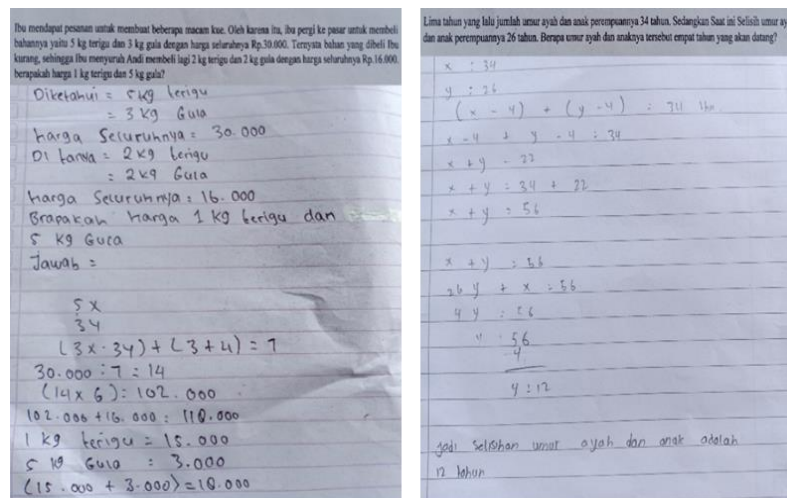 Ibu mendapat pesanan untuk membuat beberapa macam kue. Oleh karena itu, ibu pergi ke pasar untuk membeli
bahannya yaitu 5 kg terigu dan 3 kg gula dengan harga seluruhnya Rp.30.000. Ternyata bahan yang dibeli Ibu
kurang, sehingga Ibu menyuruh Andi membeli lagi 2 kg terigu dan 2 kg gula dengan harga seluruhnya Rp.16.000.
berapakah harga 1 kg terigu dan 5 kg gula?
Diketahui = 5kg terigu
= 3 kg Gula
harga Seluruhnya = 30.000
Di tanya = 2 kg terigu
= 2 kg Gula
harga Seluruhnya = 16.000
Brapakah harga 1 kg terigu dan
5 kg Gula
Jawab =
5 x
3 y
(3x - 3y) + (3 + 4) = 7
30.000 : 7 = 14
(14 x 6) = 102.000
102.000 + 16.000 = 118.000
1 kg terigu = 15.000
5 kg Gula : 3.000
(15.000 + 3.000) = 18.000
Lima tahun yang lalu jumlah umur ayah dan anak perempuannya 34 tahun. Sedangkan Saat ini Selisih umur ay
dan anak perempuannya 26 tahun. Berapa umur ayah dan anaknya tersebut empat tahun yang akan datang?
x : 34
y : 26
(x - 4) + (y - 4) = 34 thn
x - 4 + y - 4 = 34
x + y - 22
x + y = 34 + 22
x + y = 56
x + y = 56
26 y + x = 56
4 y = 56
y = 56
4
y = 12
Jadi selisihan umur ayah dan anak adalah
12 tahun